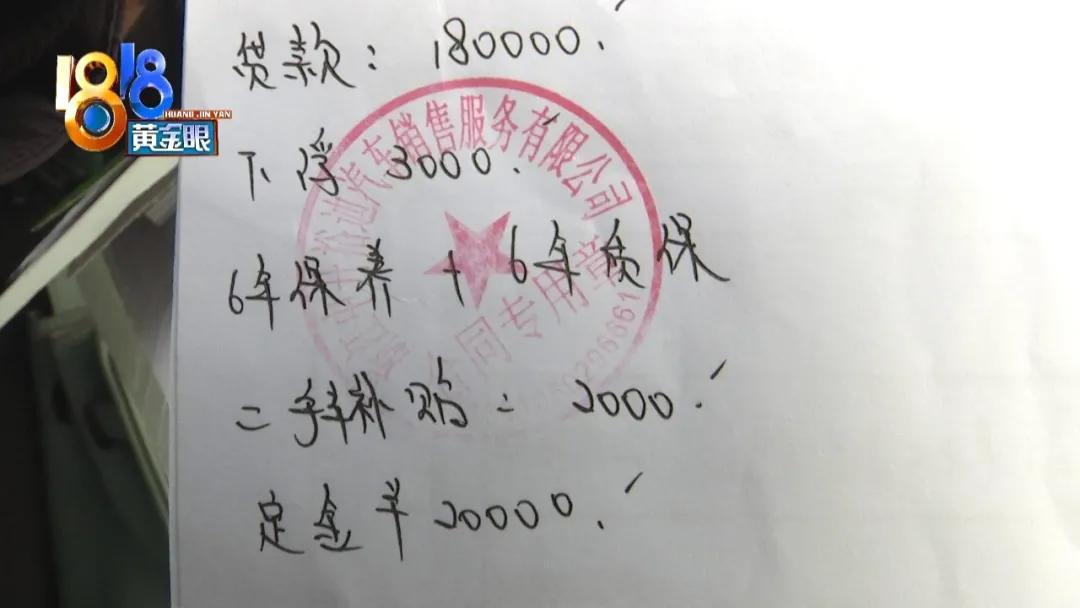 1818
HUANG JIN YAN
黄金眼
贷款：180000.
下浮 3000.
汽车销售服务有限公司
6年保养 + 6年质保
合同专用章
二手车补贴：2000.
定金羊20000.